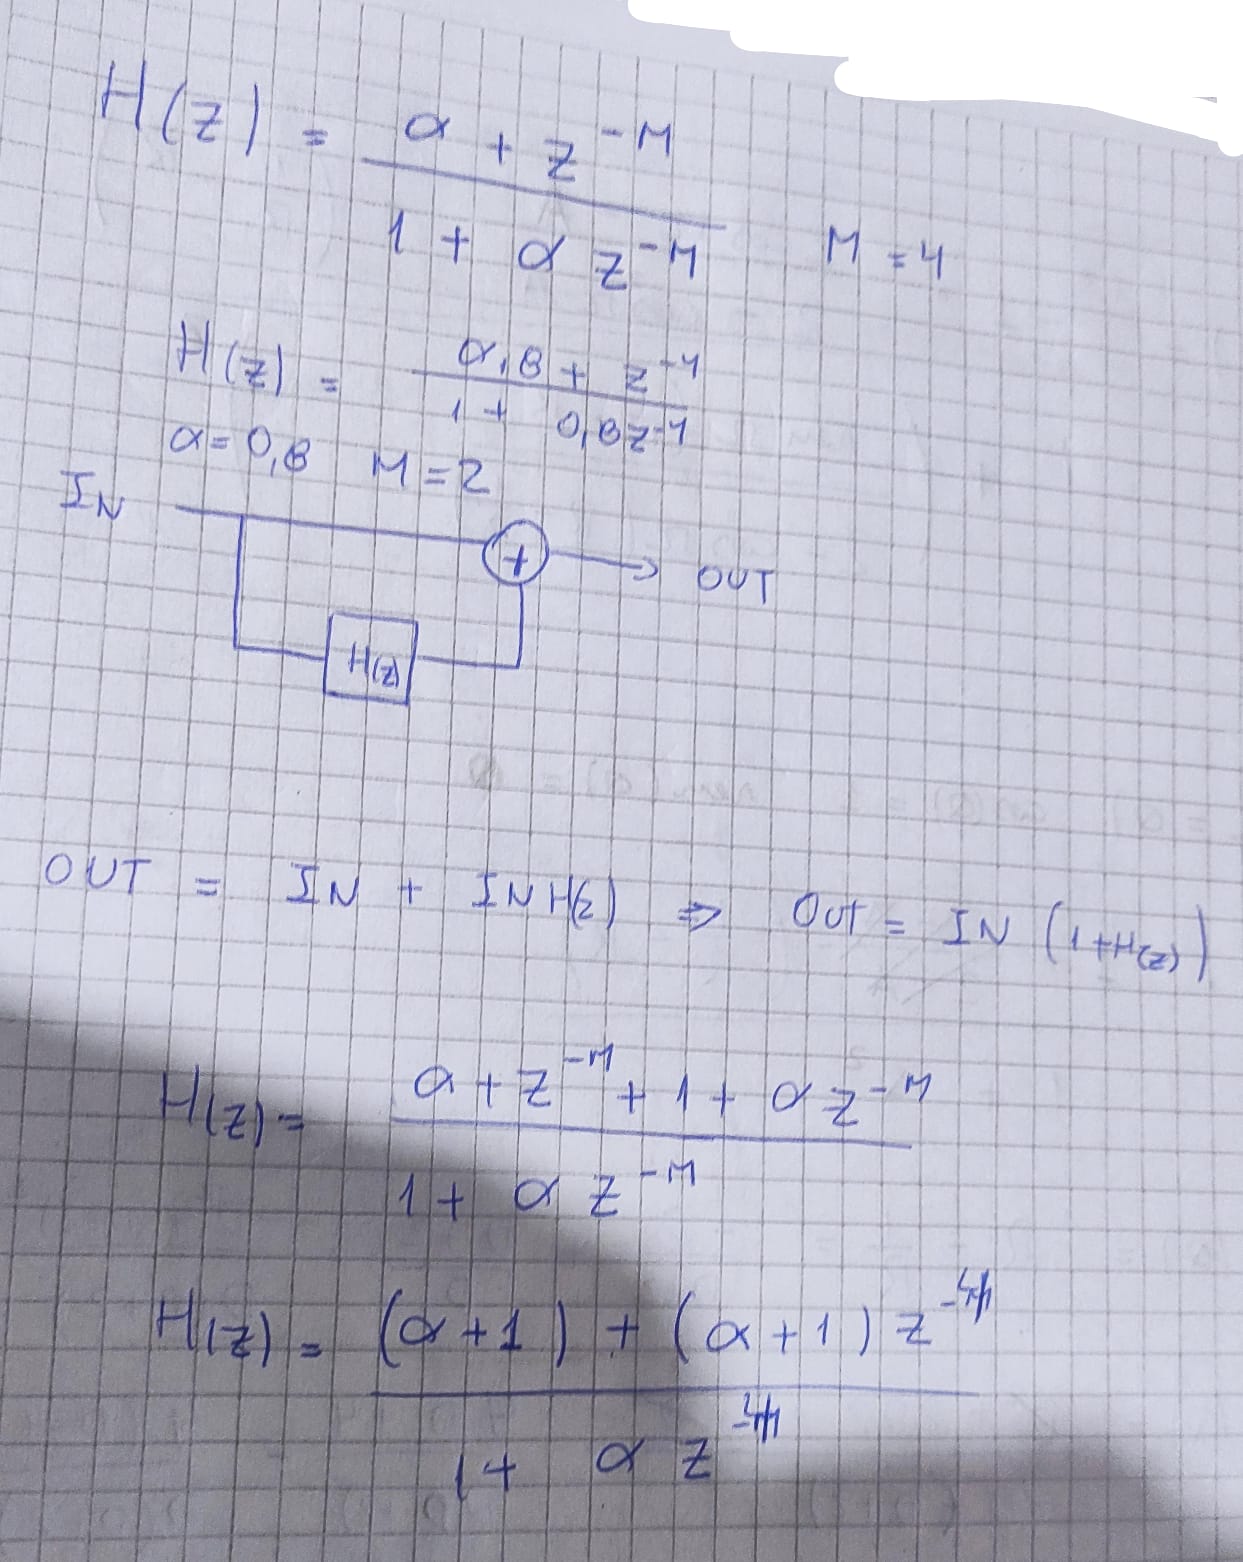 H(z) = α + z^-M / 1 + α z^-M    M = 4
H(z) = α,8 + z^-4 / 1 + 0,8z^-4
α = 0,8 M = 2
IN
+
OUT
H(z)
OUT = IN + IN H(z) ⇒ OUT = IN (1+H(z))
H(z) = α + z^-M + 1 + α z^-M / 1 + α z^-M
H(z) = (α + 1) + (α + 1) z / 1 + α z